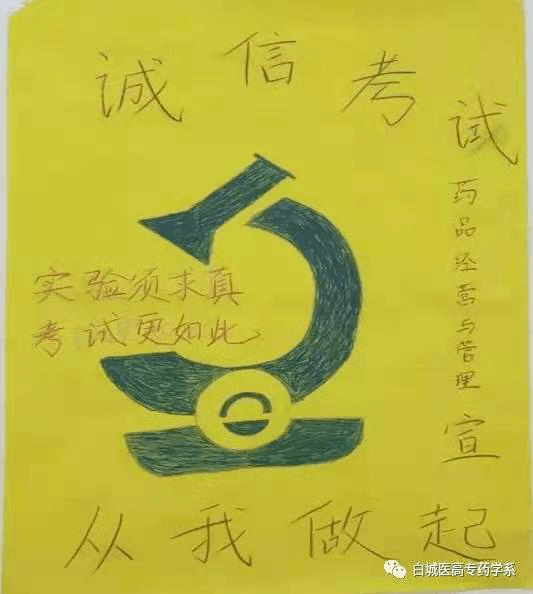 诚信考试
实验须求真
考试更如此
药品经营与管理
宣
从我做起
白城医高专药学系